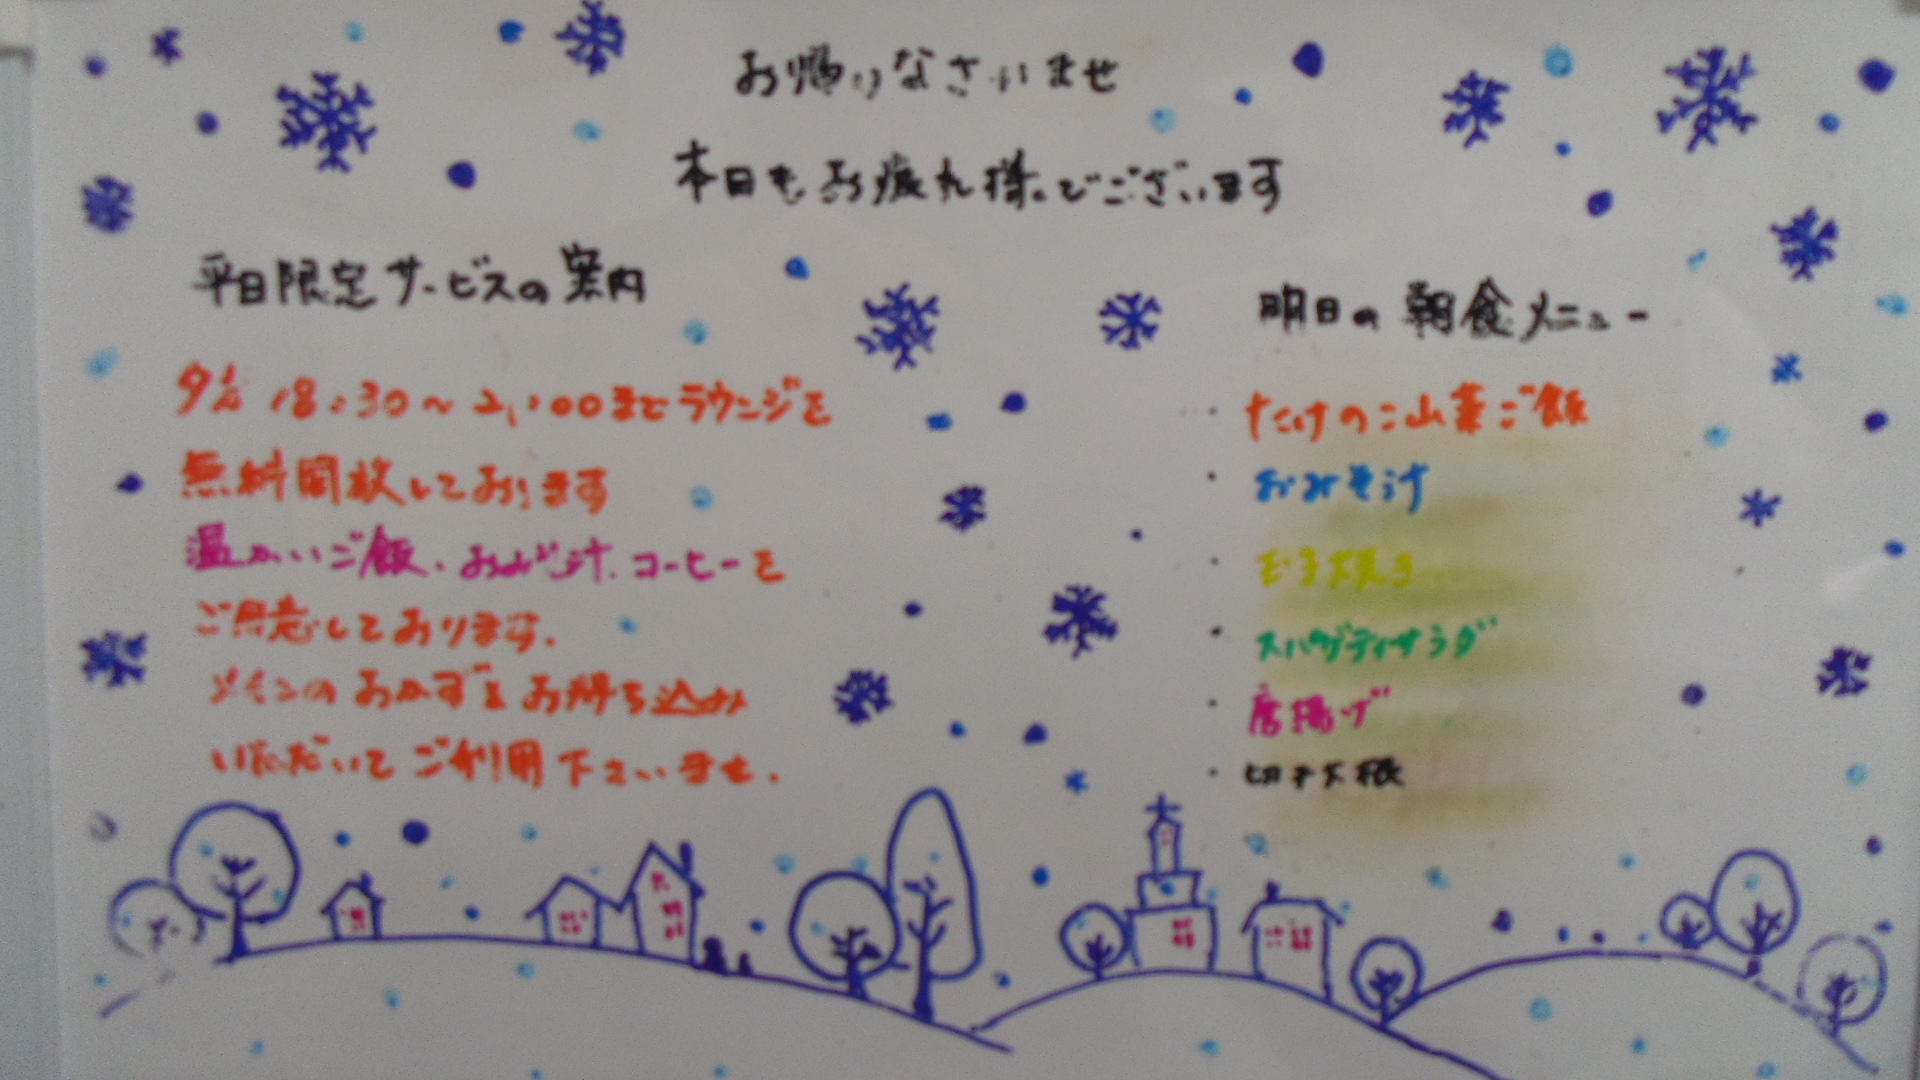 お帰りなさいませ
本日もお疲れ様でございます
平日限定サービスの案内
夕方 18:30～21:00までラウンジを
無料開放しております
温かいご飯、おみそ汁、コーヒーを
ご用意しております。
メインのおかずをお持ち込み
いただいてご利用下さいませ。
明日の朝食メニュー
・たけのこ山菜ご飯
・おみそ汁
・玉子焼き
・スパゲティサラダ
・唐揚げ
・切干大根